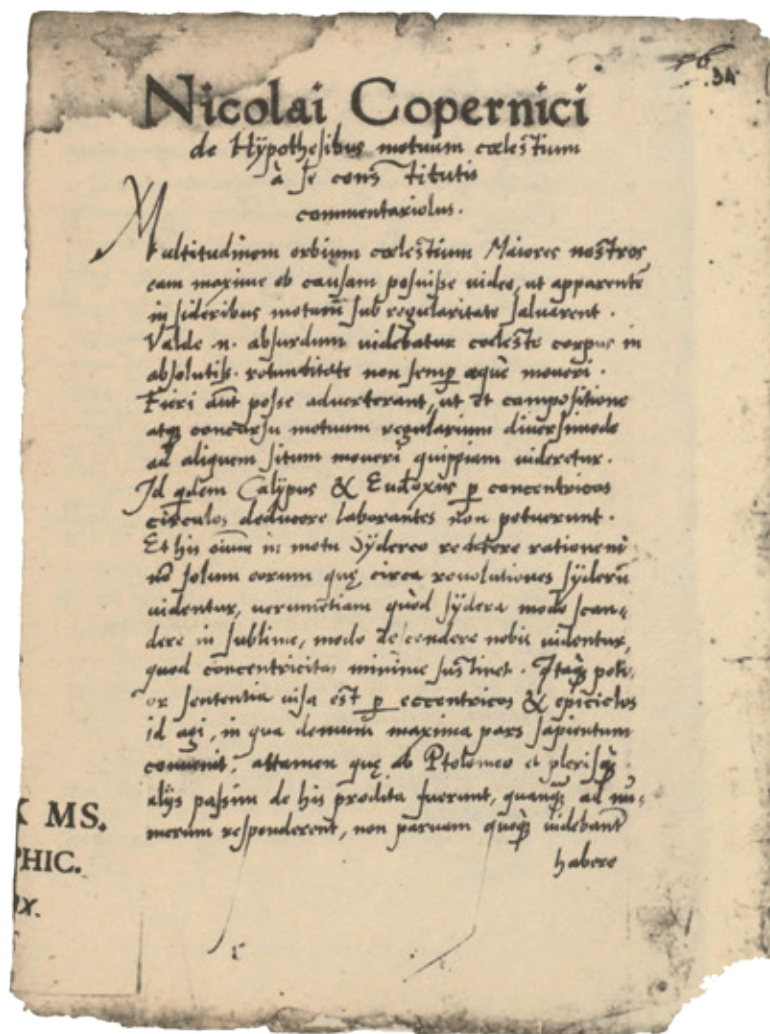 34
Nicolai Copernici
de Hÿpothesibus motuum cœlestium
à se constitutis
commentariolus.
Multitudinem orbium cœlestium Maiores nostros
eam maxime ob causam posuisse uideo, ut apparentē
in sideribus motum sub regularitate saluarent.
Valde .n. absurdum uidebatur cœleste corpus in
absolutiss. rotunditate non semp æque moueri.
Fieri aūt posse aduerterant, ut et compositione
atq; concursu motuum regularium diuersimode
ad aliquem situm moueri quippiam uideretur.
Id qdem Calÿpus & Eudoxus p concentricos
circulos deducere laborantes non potuerunt.
Et his oium in motu sÿdereo reddere rationem
nō solum eorum quę circa reuolutiones sÿderū
uidentur, uerumetiam quòd sÿdera modo scan=
dere in sublime, modo descendere nobis uidentur,
quod concentricitas minime sustinet. Itaq; poti=
or sententia uisa est p eccentricos & epiciclos
id agi, in qua demum maxima pars sapientum
conuenit, attamen quę ab Ptolomeo et plerisq;
alÿs passim de his prodita fuerunt, quanq; ad nu=
merum responderent, non paruam quoq; uidebant
habere
K MS.
PHIC.
IX.